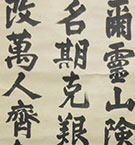 爾靈山險
名期克艱
改萬人齊